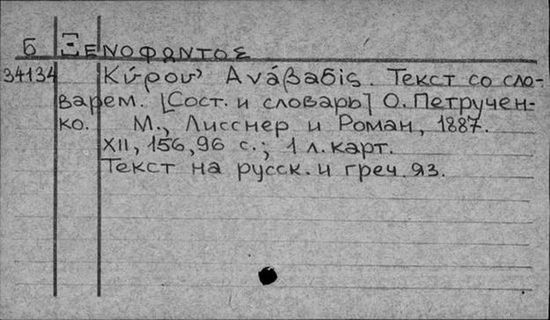 Б ΞΕΝΟΦΩΝΤΟΣ
34134 Κύρου Ανάβασις. Текст со сло-
варем. [Сост. и словарь] О. Петручен-
ко. М., Лисснер и Роман, 1887.
XII, 156, 96 с.; 1 л. карт.
Текст на русск. и греч. яз.